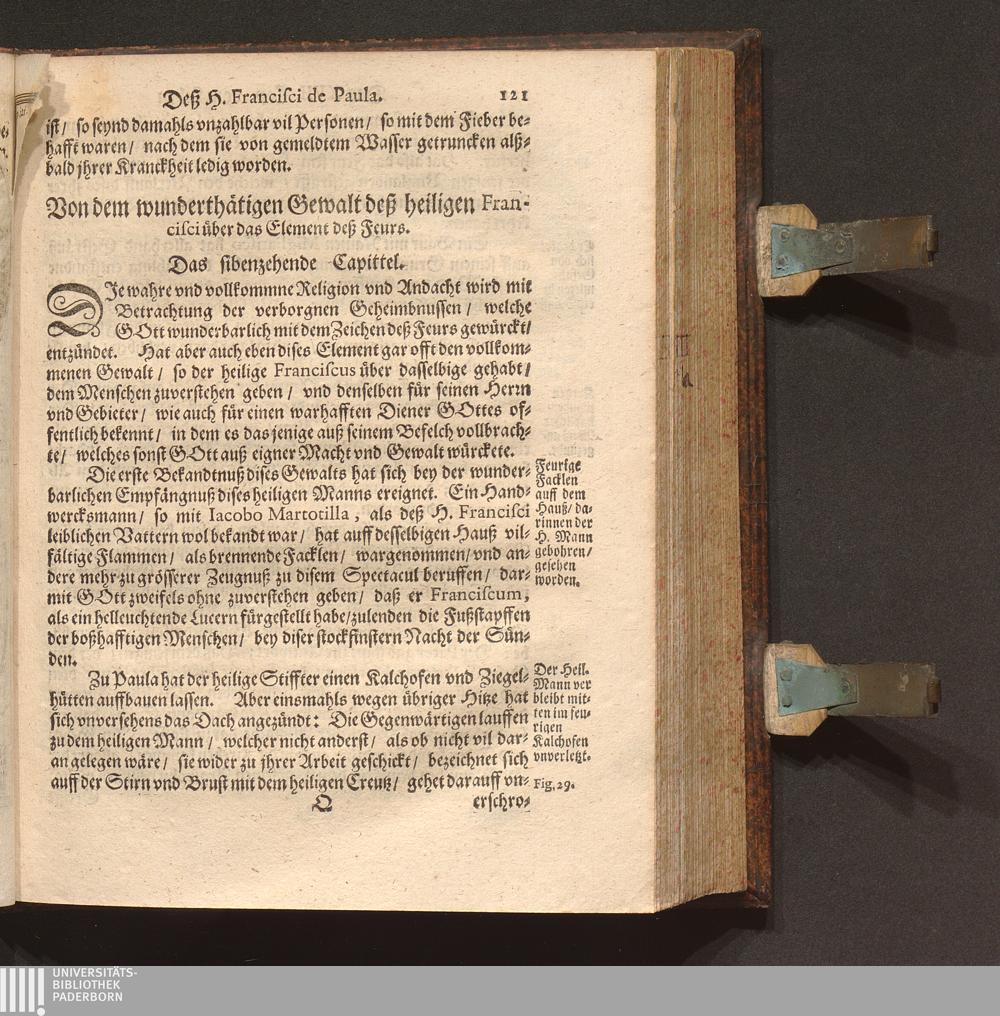 Deß H. Franciſci de Paula. 121
iſt/ ſo ſeynd damahls vnzahlbar vil Perſonen/ ſo mit dem Fieber be-
hafft waren/ nach dem ſie von gemeldtem Waſſer getruncken alß-
bald jhrer Kranckheit ledig worden.
Von dem wunderthätigen Gewalt deß heiligen Fran-
ciſci über das Element deß Feurs.
Das ſibenzehende Capittel.
DIe wahre vnd vollkommne Religion vnd Andacht wird mit
Betrachtung der verborgnen Geheimbnuſſen/ welche
GOtt wunderbarlich mit dem Zeichen deß Feurs gewürckt/
entzündet. Hat aber auch eben diſes Element gar offt den vollkom-
menen Gewalt/ ſo der heilige Franciſcus über daſſelbige gehabt/
dem Menſchen zuverſtehen geben/ vnd denſelben für ſeinen Herrn
vnd Gebieter/ wie auch für einen warhafften Diener GOttes of-
fentlich bekennt/ in dem es das jenige auß ſeinem Befelch vollbrach-
te/ welches ſonſt GOtt auß eigner Macht vnd Gewalt würckete.
Die erſte Bekandtnuß diſes Gewalts hat ſich bey der wunder-
barlichen Empfängnuß diſes heiligen Manns ereignet. Ein Hand-
wercksmann/ ſo mit Iacobo Martotilla, als deß H. Franciſci
leiblichen Vattern wol bekandt war/ hat auff deſſelbigen Hauß vil-
fältige Flammen/ als brennende Facklen/ wargenommen/ vnd an-
dere mehr zu gröſſerer Zeugnuß zu diſem Spectacul beruffen/ dar-
mit GOtt zweifels ohne zuverſtehen geben/ daß er Franciſcum,
als ein helleuchtende Lucern fürgeſtellt habe/ zulenden die Fußſtapffen
der boßhafftigen Menſchen/ bey diſer ſtockfinſtern Nacht der Sün-
den.
Feurige
Facklen
auff dem
Hauß/ da-
rinnen der
H. Mann
gebohren/
geſehen
worden.
Zu Paula hat der heilige Stiffter einen Kalchofen vnd Ziegel-
hütten auffbauen laſſen. Aber einsmahls wegen übriger Hitze hat
ſich vnverſehens das Dach angezündt: Die Gegenwärtigen lauffen
zu dem heiligen Mann/ welcher nicht anderſt/ als ob nicht vil dar-
an gelegen wäre/ ſie wider zu jhrer Arbeit geſchickt/ bezeichnet ſich
auff der Stirn vnd Bruſt mit dem heiligen Creutz/ gehet darauff vn-
Der Heil.
Mann ver
bleibt mit-
ten im feu-
rigen
Kalchofen
vnverletzt.
Fig. 29.
Q erſchro-
UNIVERSITÄTS-
BIBLIOTHEK
PADERBORN